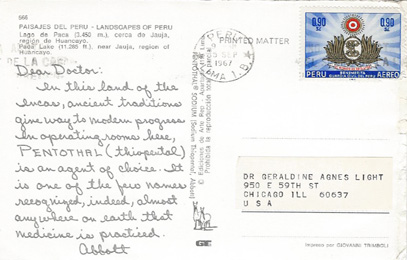 566
PAISAJES DEL PERU - LANDSCAPES OF PERU
Lago de Paca (3.450 m.), cerca de Jauja,
región de Huancayo.
Paca Lake (11.285 ft.), near Jauja, region of
Huancayo.
Dear Doctor:
In this land of the
Incas, ancient traditions
give way to modern progress
In operating rooms here,
PENTOTHAL (thiopental)
is an agent of choice. It
is one of the few names
recognized, indeed, almost
anywhere on earth that
medicine is practiced.
Abbott
PERU
1967
LIMA
PRINTED MATTER
0.90
0.90
PERU
AEREO
DR GERALDINE AGNES LIGHT
950 E 59TH ST
CHICAGO ILL 60637
U S A
Impreso por GIOVANNI TRIMBOLI